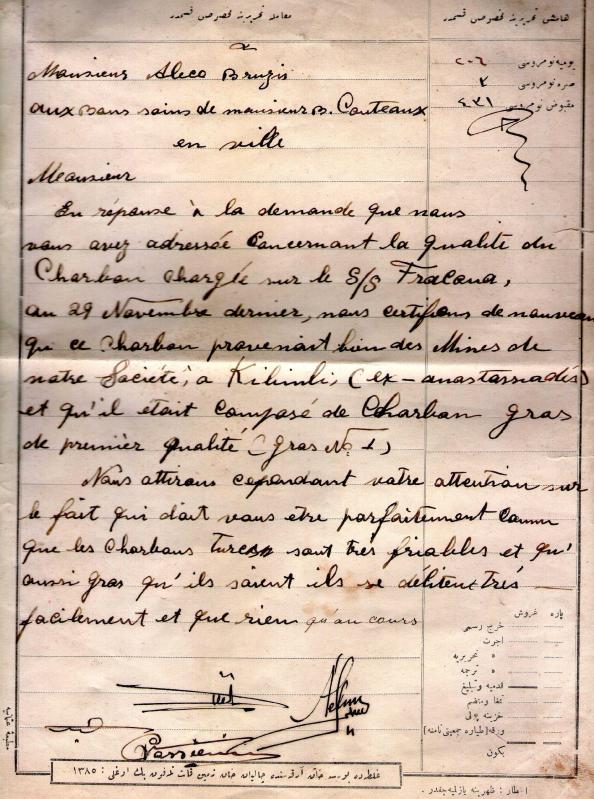 معامله تحریرینه مخصوص قسمدر
هامش تحریرینه مخصوص قسمدر
یومیه نومروسی ٢٠٦
صره نومروسی ٢
مقبوض نومروسی ٤٣١
Monsieur Aleco Bruzis
aux bons soins de monsieur B. Couteaux
en ville
Monsieur
En réponse à la demande que nous
vous avez adressée concernant la qualité du
Charbon chargée sur le S/S
au 29 Novembre dernier, nous certifions de nouveau
que ce Charbon provenait bien des Mines de
notre Société, à Kilimli, (ex-anastassiadès)
et qu'il etait composé de Charbon gras
de premièr qualité (gras No 1)
Nous attirons cependant votre attention sur
le fait qui doit vous etre parfaitement connu
que les Charbons turcs sont très friables et qu'
aussi gras qu'ils soient ils se délitent très
facilement et que rien qu'au cours
پاره غروش
خرج رسمی
اجرت
» تحریریه
» ترجمه
قدمیه و تبلیغ
خزینه پولی
یكون
مطبعۀ عثمانیه
غلطه‌ده بورسه خانی آرقه‌سنده چالیان خان زمین قات تلفون بك اوغلی : ١٣٨٥
اخطار : ظهرینه یازلمیه‌جقدر .